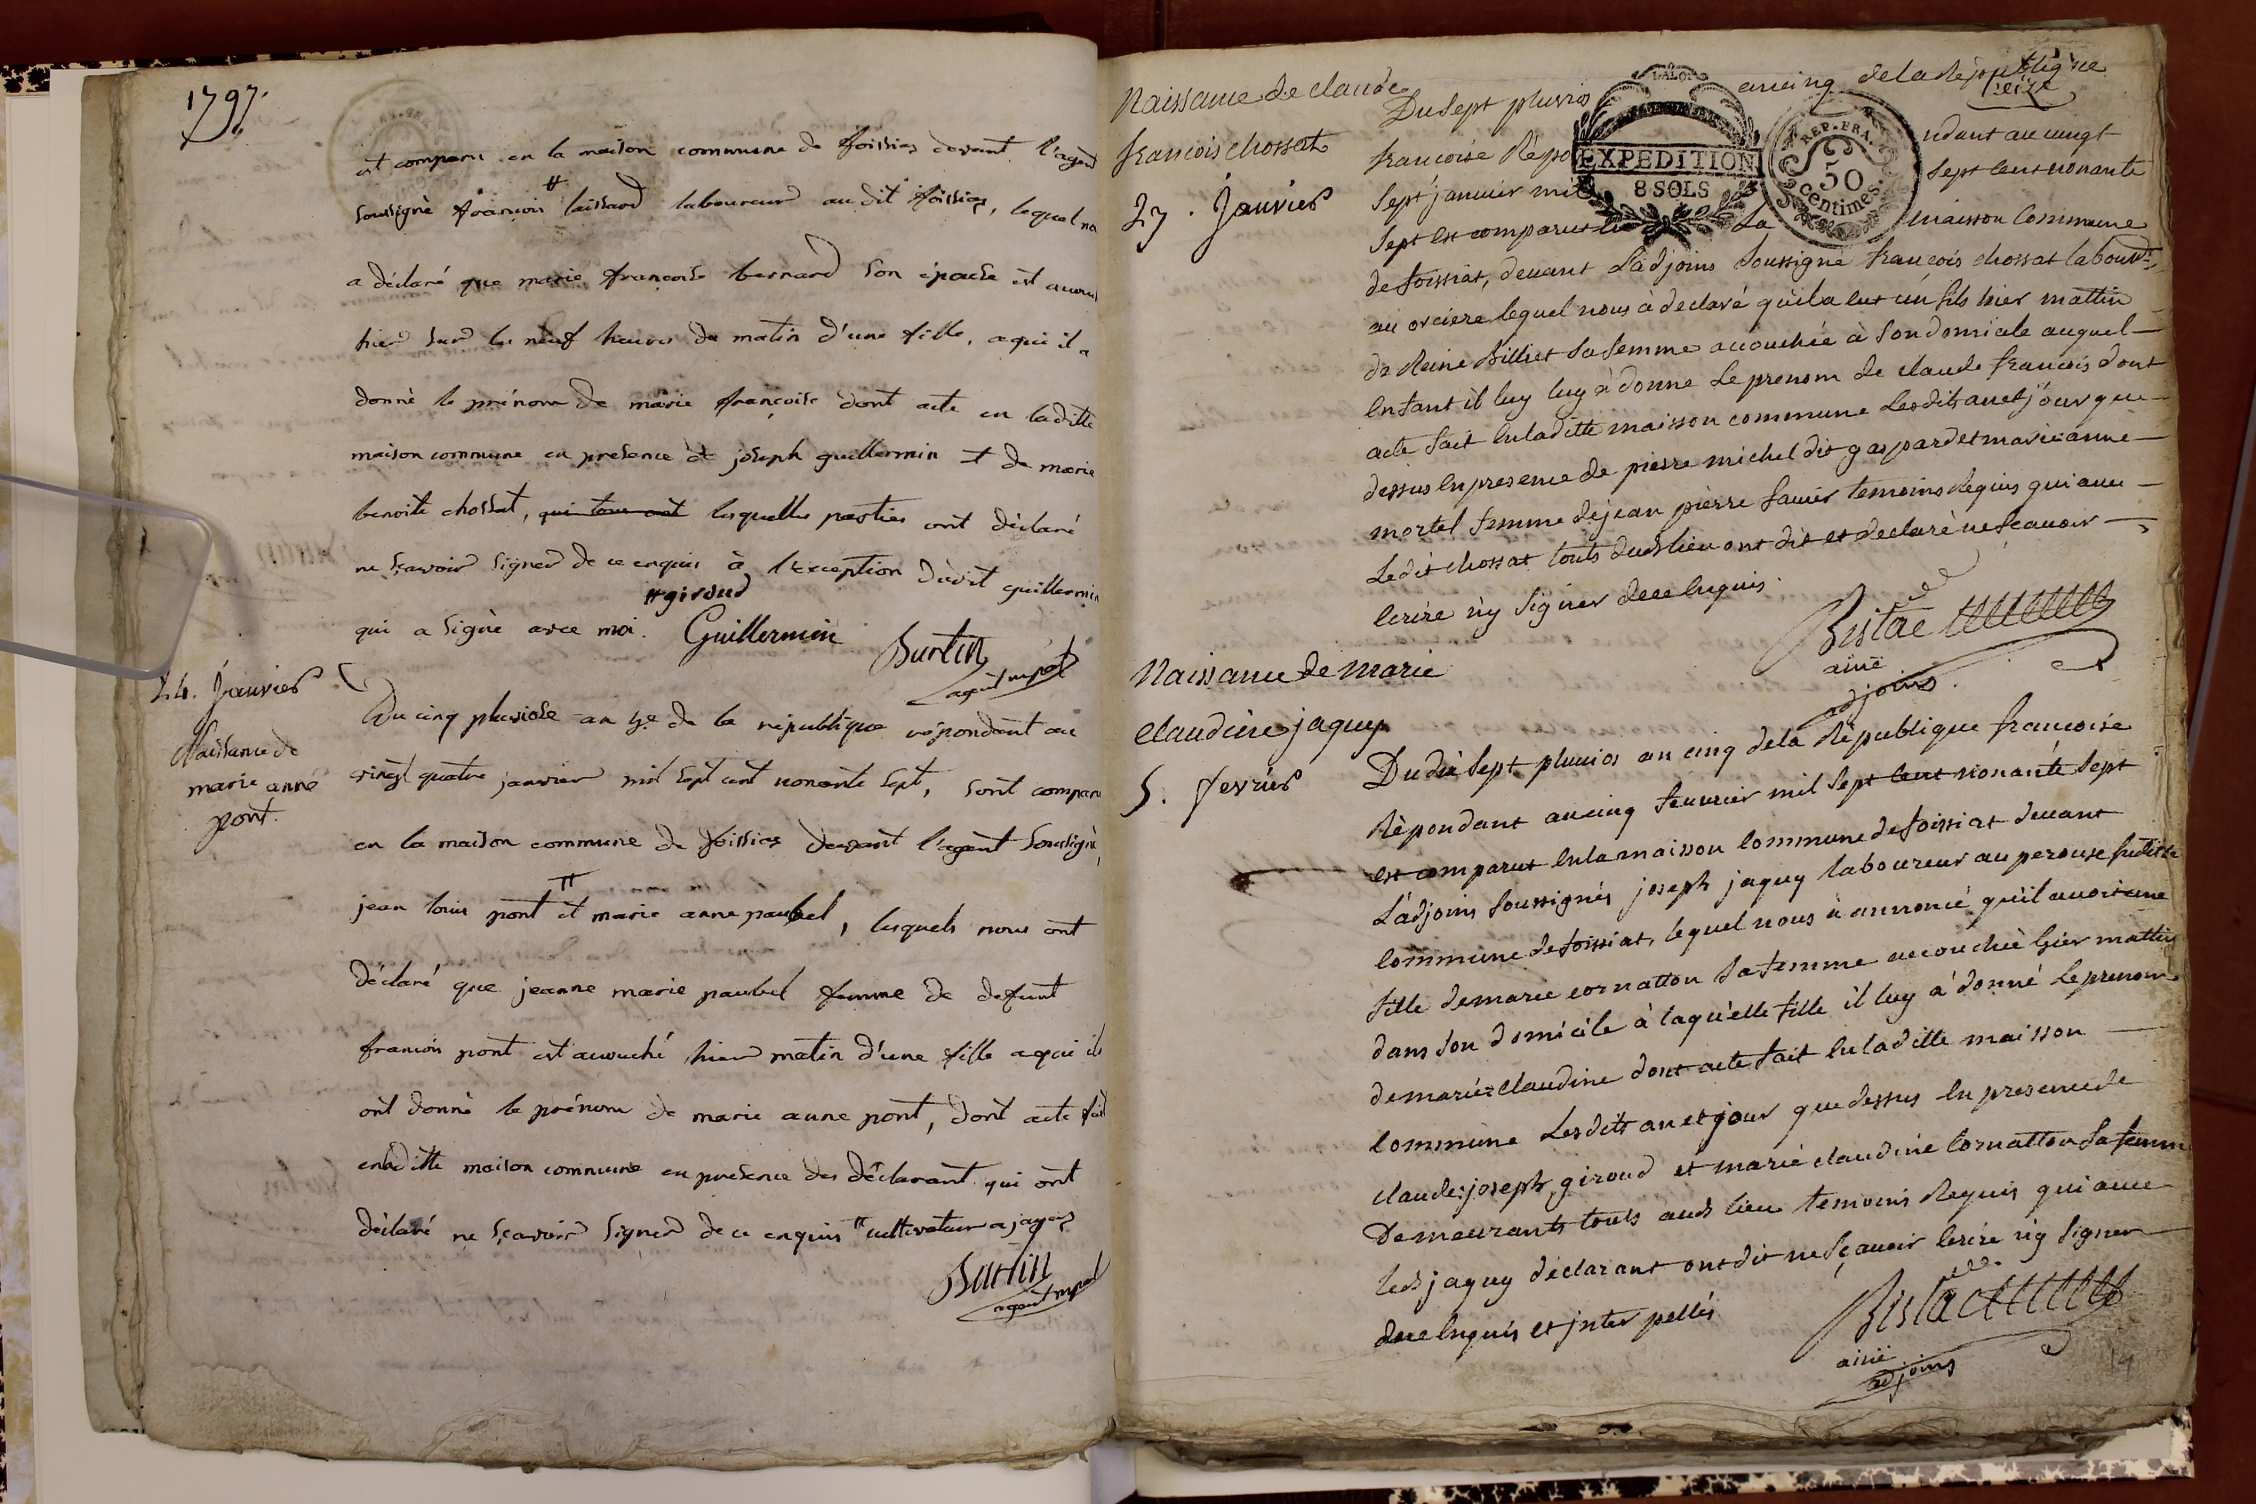 1797.
est comparu en la maison commune de foissias devant l'agent
soussigné françois # laissard laboureur audit foissias, lequel na
a déclaré que marie françoise bernard son épouse est accou
hier sur les neuf heures du matin d'une fille, a qui il a
donné le prénom de marie françoise dont acte en laditte
maison commune en presence de joseph guillermin et de marie
benoite chossat, qui tous ont lesquelles parties ont déclaré
ne sçavoir signer de ce enquis à l'exception dudit guillermin
# giroud
qui a signé avec moi. Guillermin Burtin
agent mpal
24. Janvier
Naissance de
marie anne
pont.
Du cinq pluviose an 5e. de la république répondant au
vingt quatre janvier mil sept cent nonante sept, sont comparu
en la maison commune de foissias devant l'agent soussigné,
jean louis pont # et marie anne paubel, lesquels nous ont
déclaré que jeanne marie paubel femme de defunt
françois pont est accouché hier matin d'une fille a qui ils
ont donné le prénom de marie anne pont, dont acte fait
enladitte maison commune en presence des déclarant qui ont
déclaré ne sçavoir signer de ce enquis # cultivateur a jayas
Burtin
agent mpal
Naissance de claude
francois chossat
27. Janvier
EXPEDITION
8 SOLS
REP. FRA.
50
Centimes.
Du sept pluvios an cinq de la Republique
seize
francoise Répo ndant au vingt
sept janvier mil sept cent nonante
sept est comparut La maisson Commune
de foissiat, devant L'adjoins soussigné francois chossat labour
au orciere lequel nous à declaré qu'il a eut un fils hier mattin
de Reine Billiet sa femme accouchée à son domicile auquel
Enfant il luy luy à donne Le prenom de claude francois dont
acte fait En laditte maisson commune Lesdits an et jour que
dessus En presence de pierre michel dit gaspard et marie anne
mortel femme de jean pierre favier temoins Requis qui avec
Ledit chossat touts dud lieu ont dit et declaré ne scavoir
Ecrire n'y signer de ce Enquis.
Bistac
ainé
adjoins.
Naissance de marie
Claudine jaquy
5. fevrier
Du dix sept pluvios an cinq de la Republique francoise
Répondant au cinq feuvrier mil sept cent nonante sept
est comparut En la maisson Commune de foissiat devant
L'adjoins soussignés joseph jaquy laboureur au perouse sudite
Commune de foissiat, lequel nous à annoncé qu'il avoit une
fille de marie cornatton sa femme accouchée hier mattin
dans son domicile à laquelle fille il luy à donné Le prenom
de marie=Claudine dont acte fait En laditte maisson
Commune Lesdits an et jour que dessus En presence de
claude: joseph giroud et marie claudine Cornatton sa femme
Demeurants touts aud lieu temoins Requis qui avec
led jaquy déclarant ont dit ne sçavoir Ecrire n'y signer
de ce Enquis et jnter pellés
Bistac
ainé
adjoins